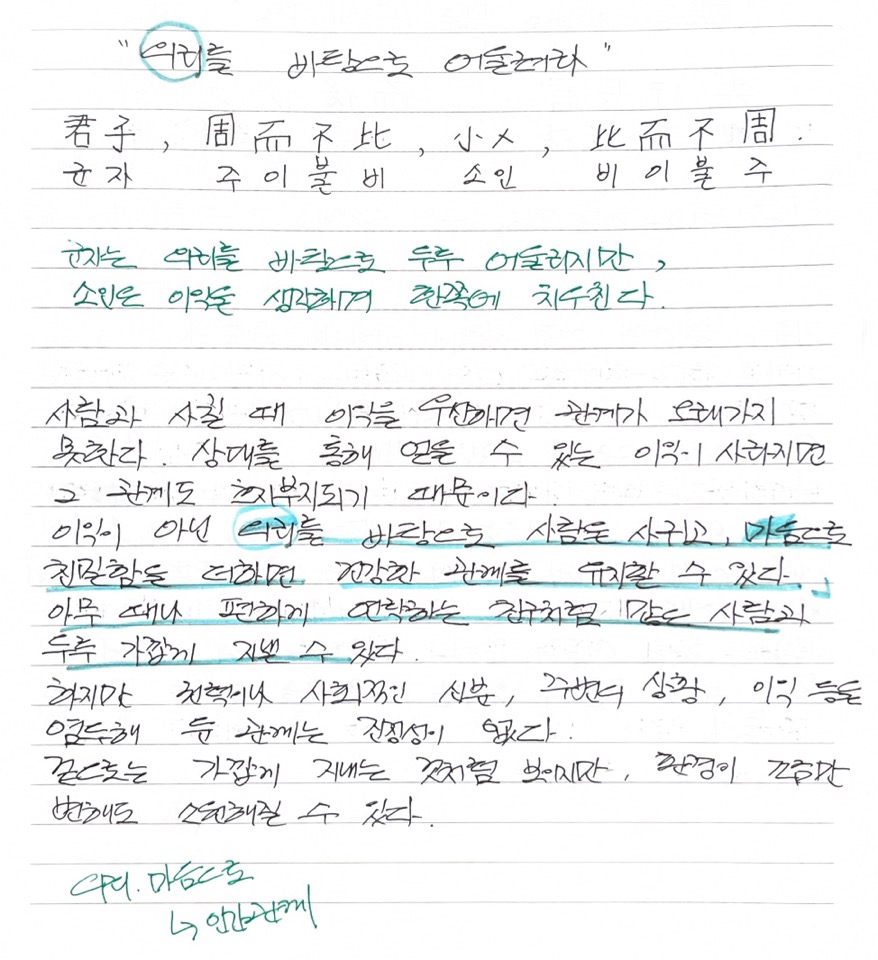 "의리를 바탕으로 어울려라"
君子, 周而不比, 小人, 比而不周.
군자 주이불비 소인 비이불주
군자는 의리를 바탕으로 두루 어울리지만,
소인은 이익을 생각하며 한쪽에 치우친다.
사람과 사귈 때 이익을 우선하면 관계가 오래가지
못한다. 상대를 통해 얻을 수 있는 이익이 사라지면
그 관계도 흐지부지되기 때문이다
이익이 아닌 의리를 바탕으로 사람을 사귀고, 마음으로
친밀함을 더하면 건강한 관계를 유지할 수 있다.
아무 때나 편하게 연락하는 친구처럼 많은 사람과
두루 가깝게 지낼 수 있다.
하지만 권력이나 사회적인 신분, 주변의 상황, 이익 등을
염두해 둔 관계는 진정성이 없다.
겉으로는 가깝게 지내는 것처럼 보이지만, 환경이 조금만
변해도 소원해질 수 있다.
의리. 마음으로
↳ 인간관계